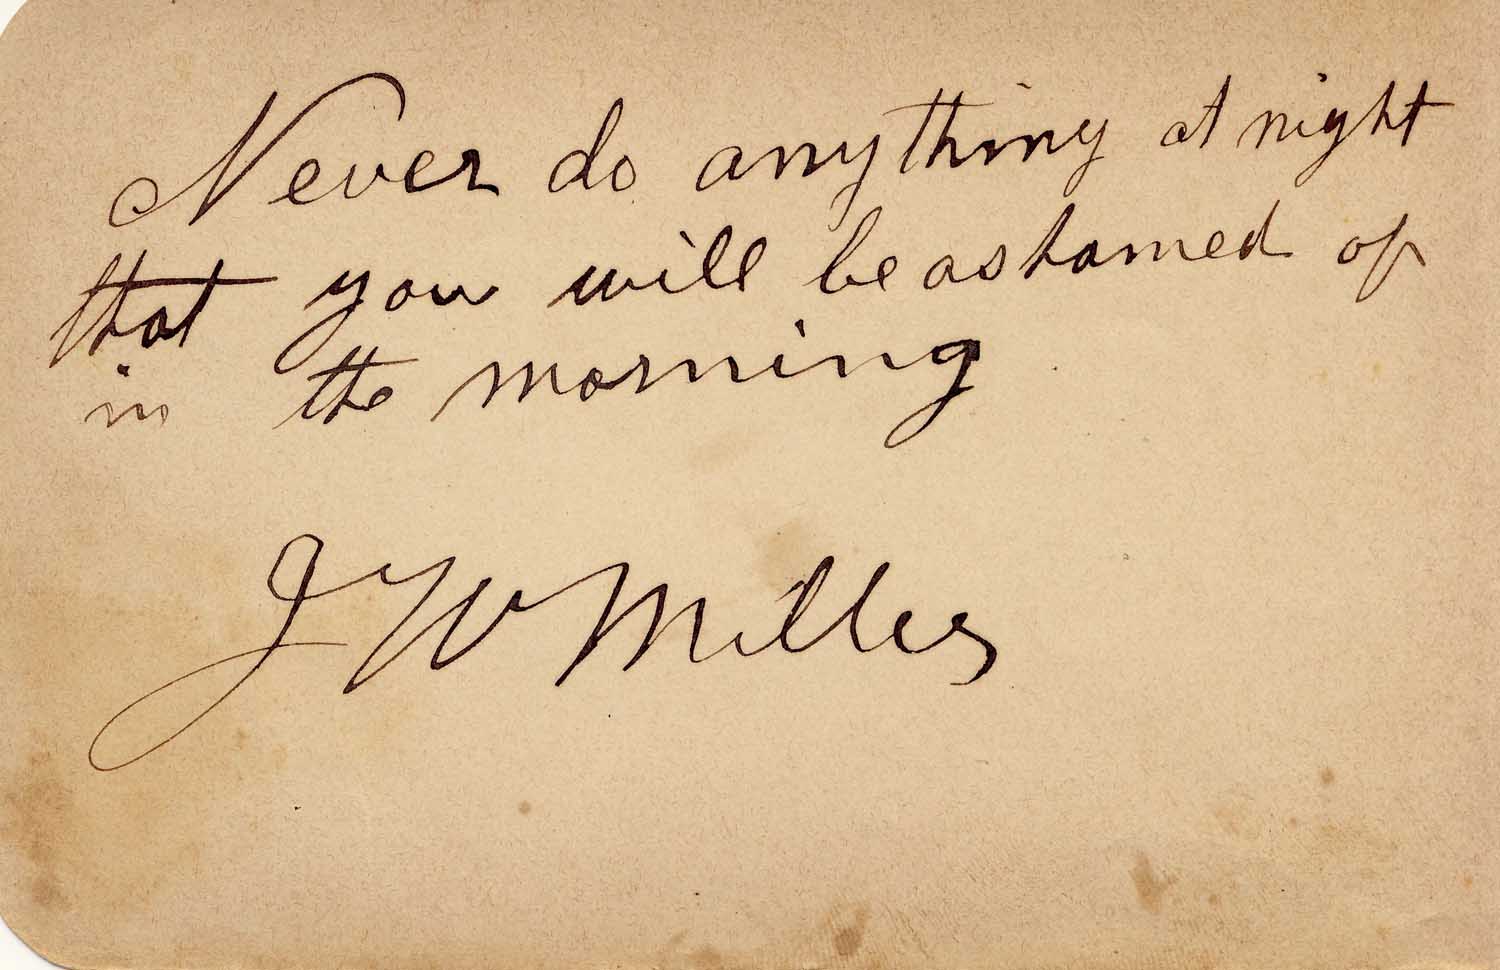 Never do anything at night
that you will be ashamed of
in the morning
J W Milles